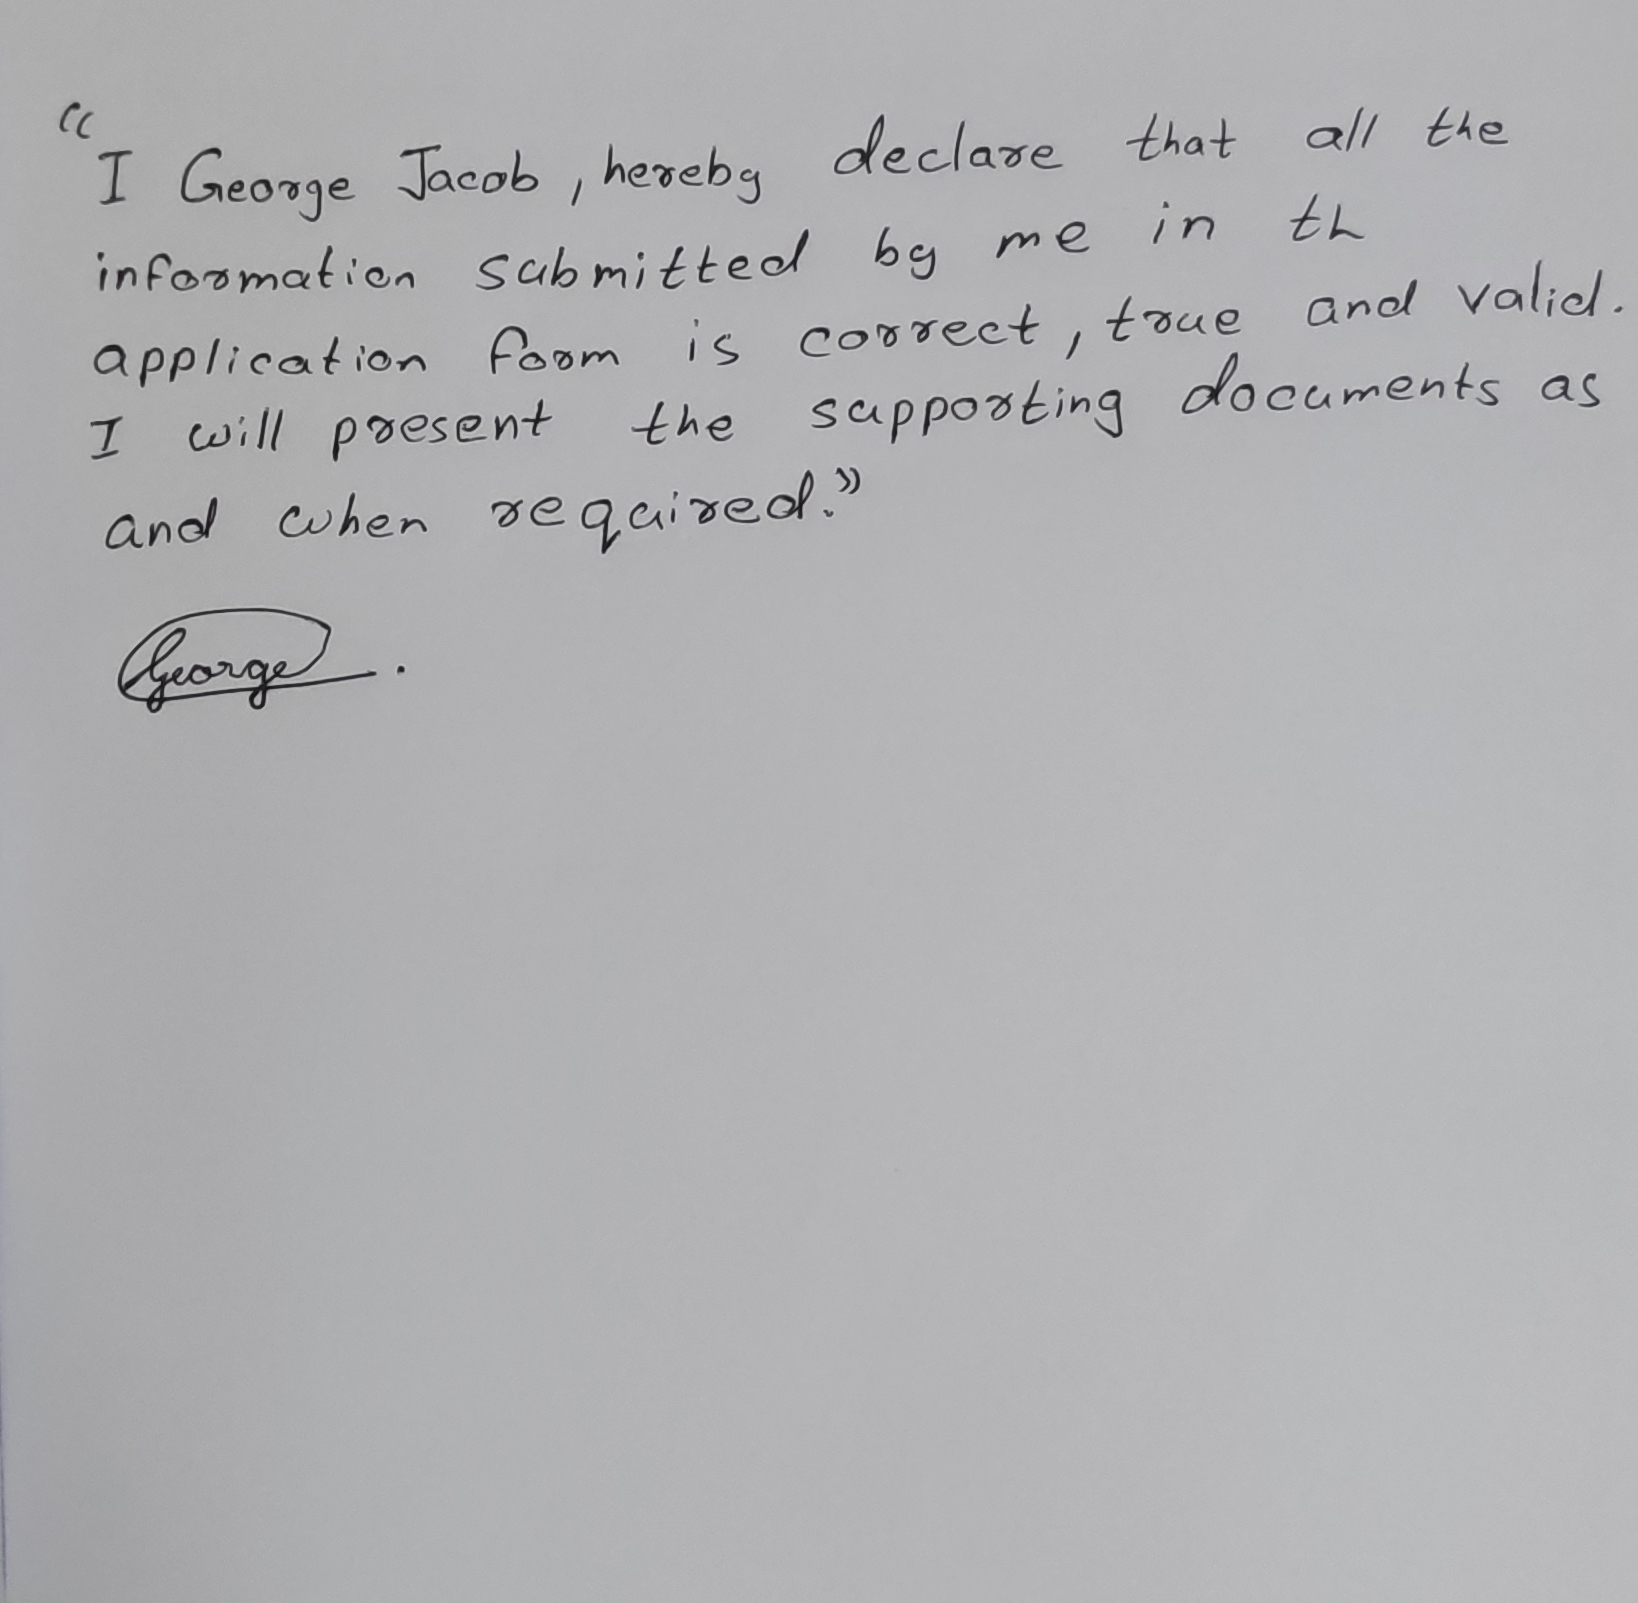 "I George Jacob, hereby declare that all the
information submitted by me in th
application form is correct, true and valid.
I will present the supporting documents as
and when required."
George.